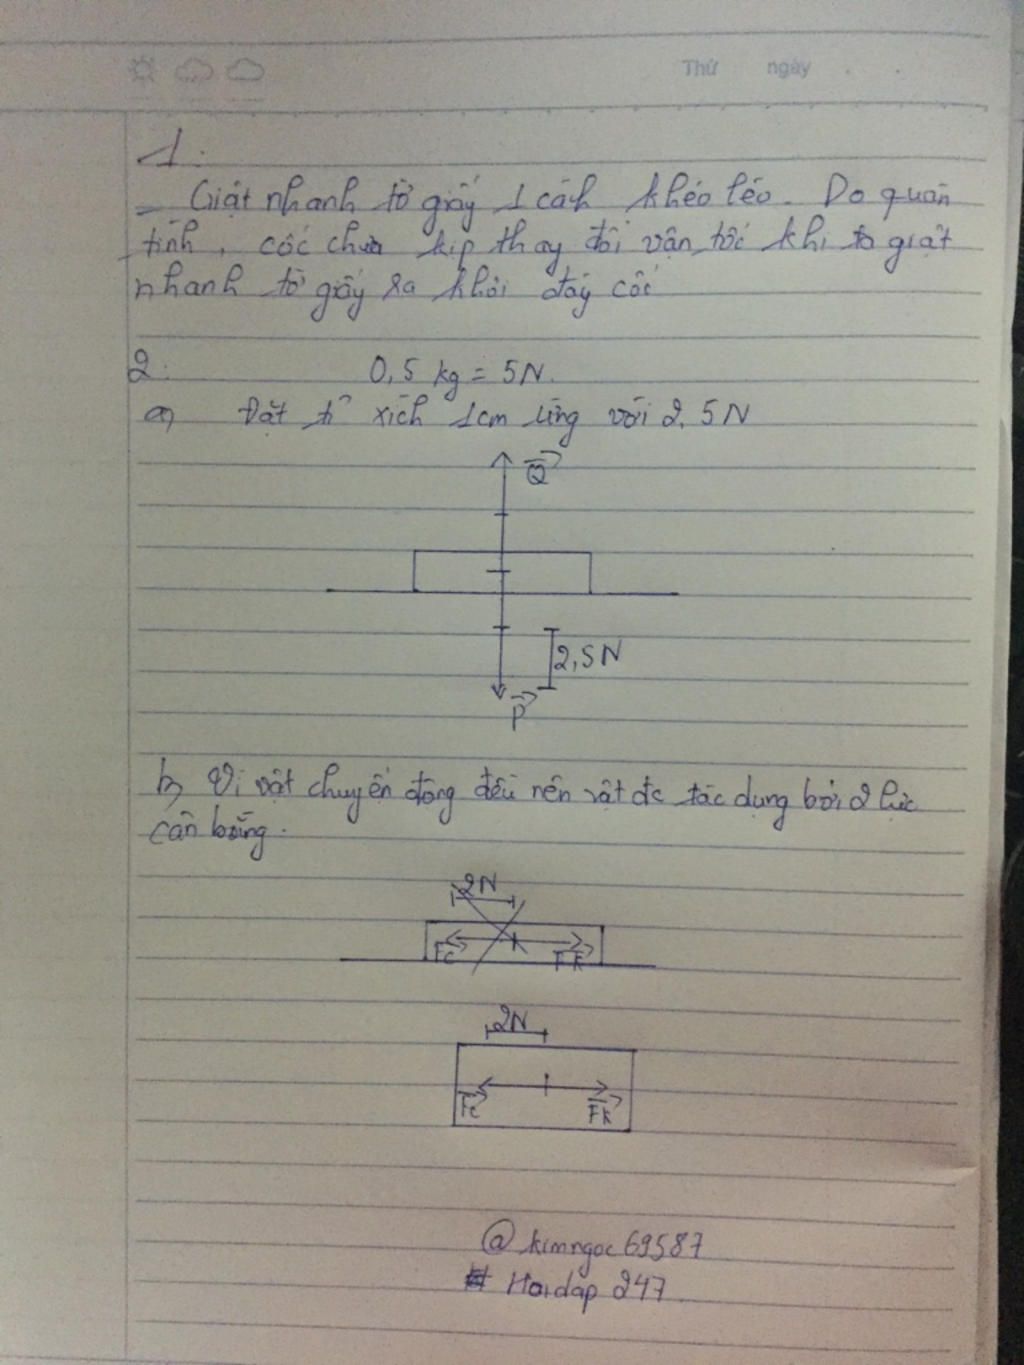 Thứ ngày
1.
- Giật nhanh tờ giấy 1 cách khéo léo. Do quán
tính, cốc chưa kịp thay đổi vận tốc khi ta giật
nhanh tờ giấy ra khỏi đáy cốc
2. 0,5 kg = 5N.
a) Đặt tỉ xích 1cm ứng với 2,5N
Q
2,5N
P
b) Vì vật chuyển động đều nên vật đc tác dụng bởi 2 lực
cân bằng.
2N
Fc Fk
2N
Fc Fk
@kimngoc69587
# Hoidap 247